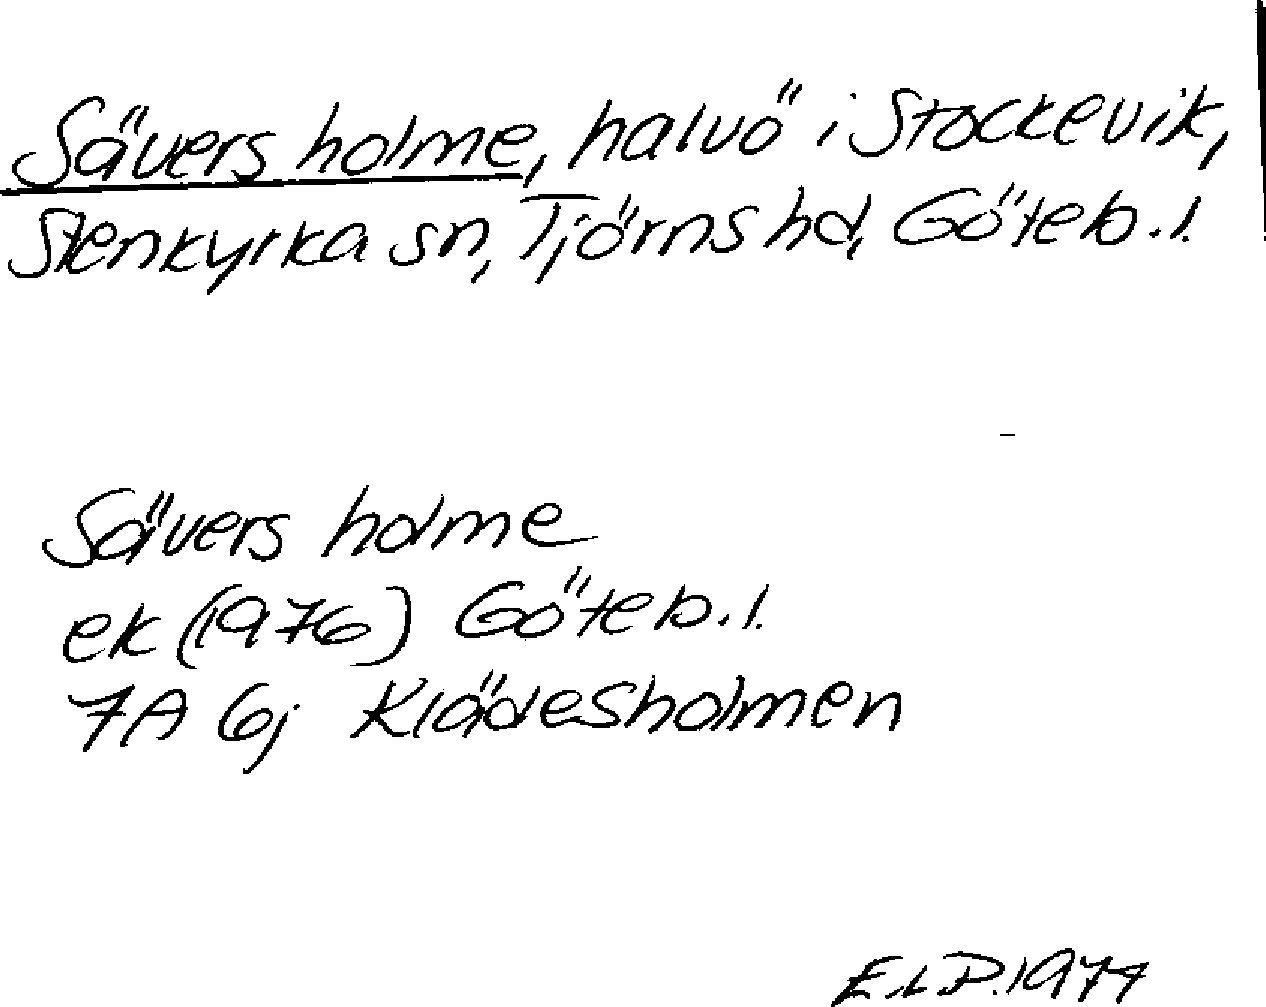 Sävers holme, halvö i Stockevik,
Stenkyrka sn, Tjörns hd, Göteb. l.
Sävers holme
ek (1976) Göteb. l.
7A 6j Klädesholmen
E.L.P. 1979